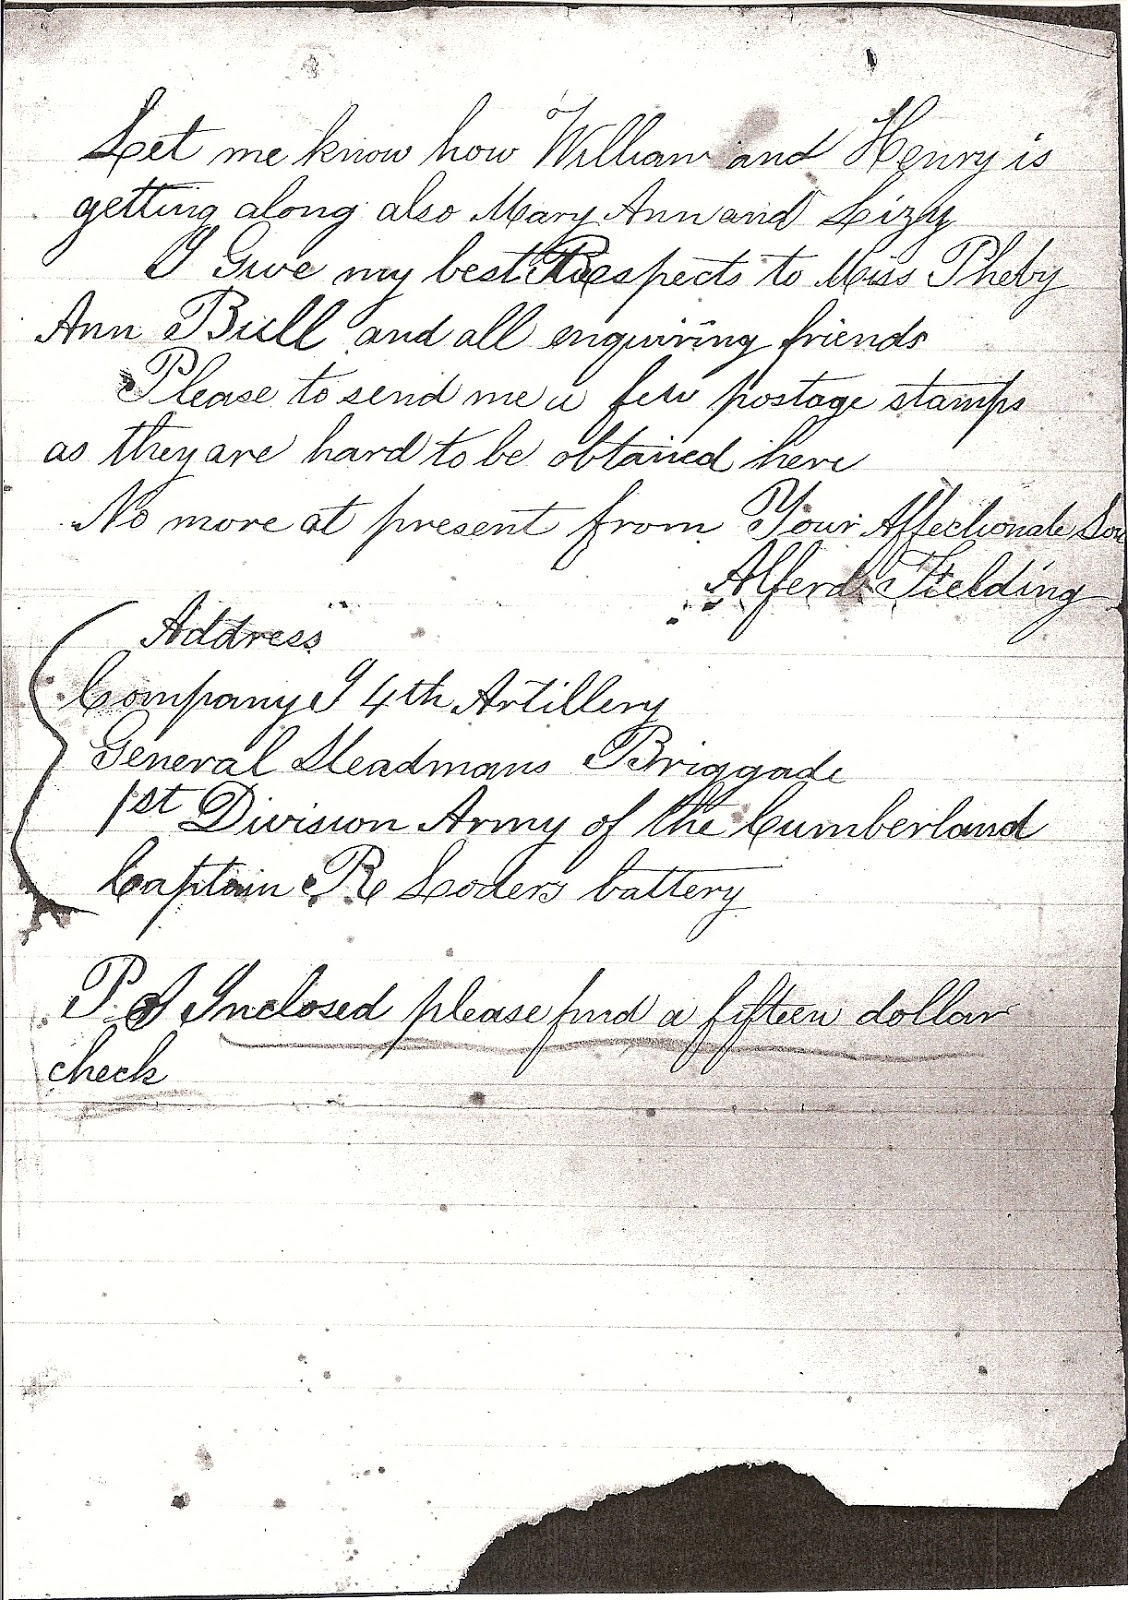 Let me know how William and Henry is
getting along also Mary Ann and Lizy
I Give my best Respects to Miss Pheby
Ann Bull and all enquiring friends
Please to send me a few postage stamps
as they are hard to be obtained here
No more at present from Your Affectionate Son
Alferd Fielding
Address
Company I 4th Artillery
General Steadmans Briggade
1st Division Army of the Cumberland
Captain R Loders battery
P. S Inclosed please find a fifteen dollar
check